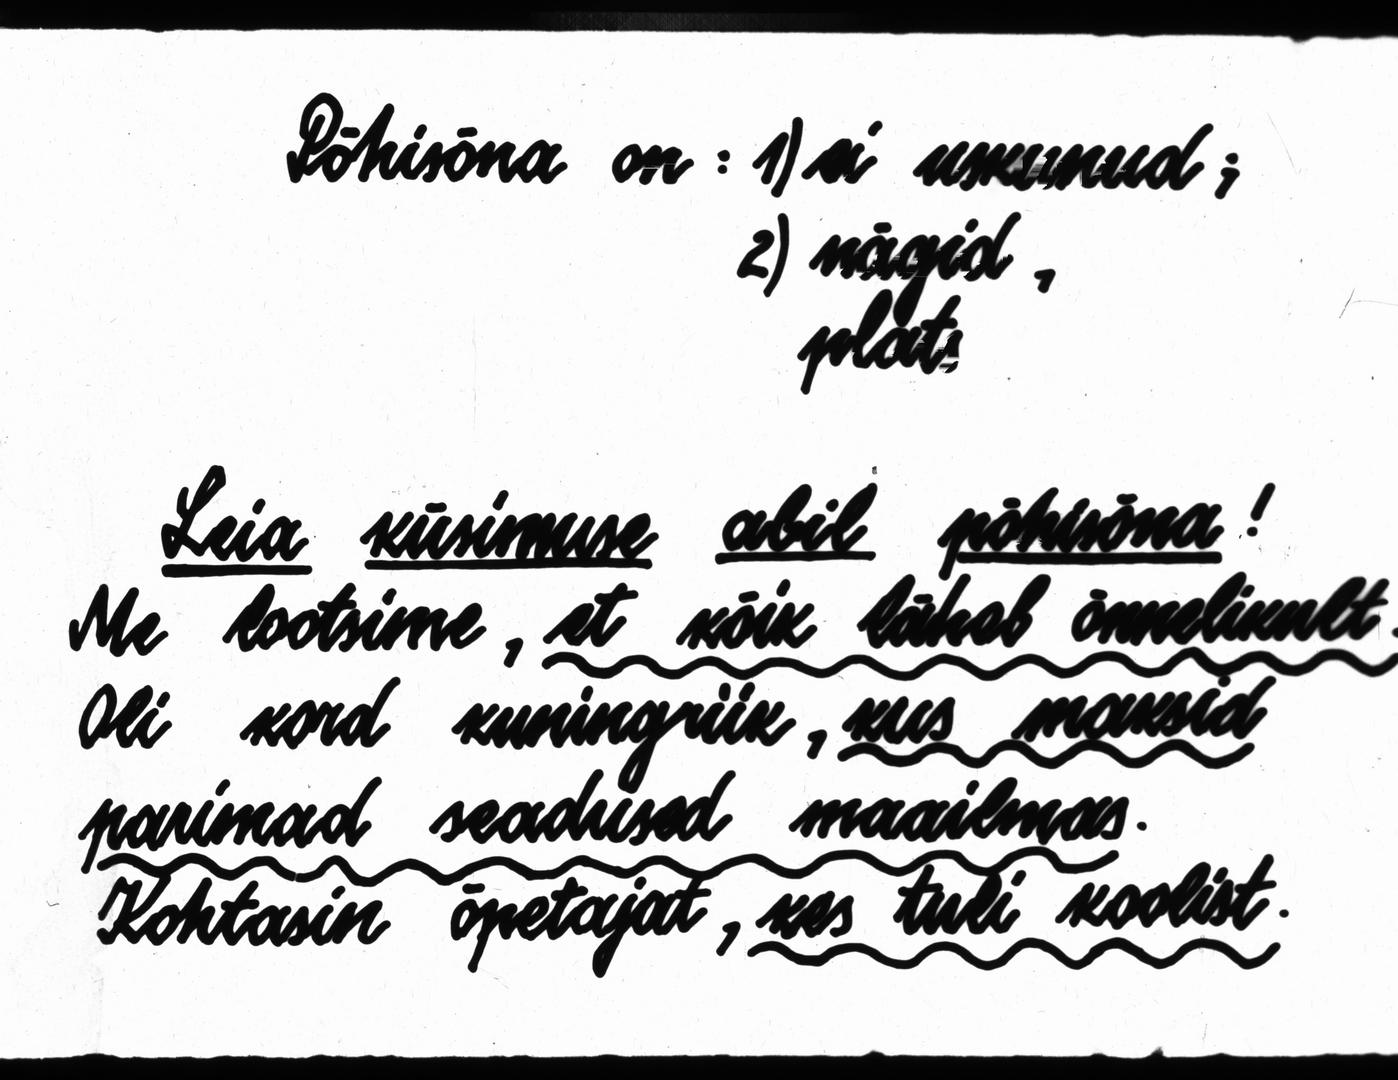 Põhisõna on: 1) ei uskunud;
2) nägid,
plats
Leia küsimuse abil põhisõna!
Me lootsime, et kõik läheb õnnelikult.
Oli kord kuningriik, kus maksid
parimad seadused maailmas.
Kohtasin õpetajat, kes tuli koolist.